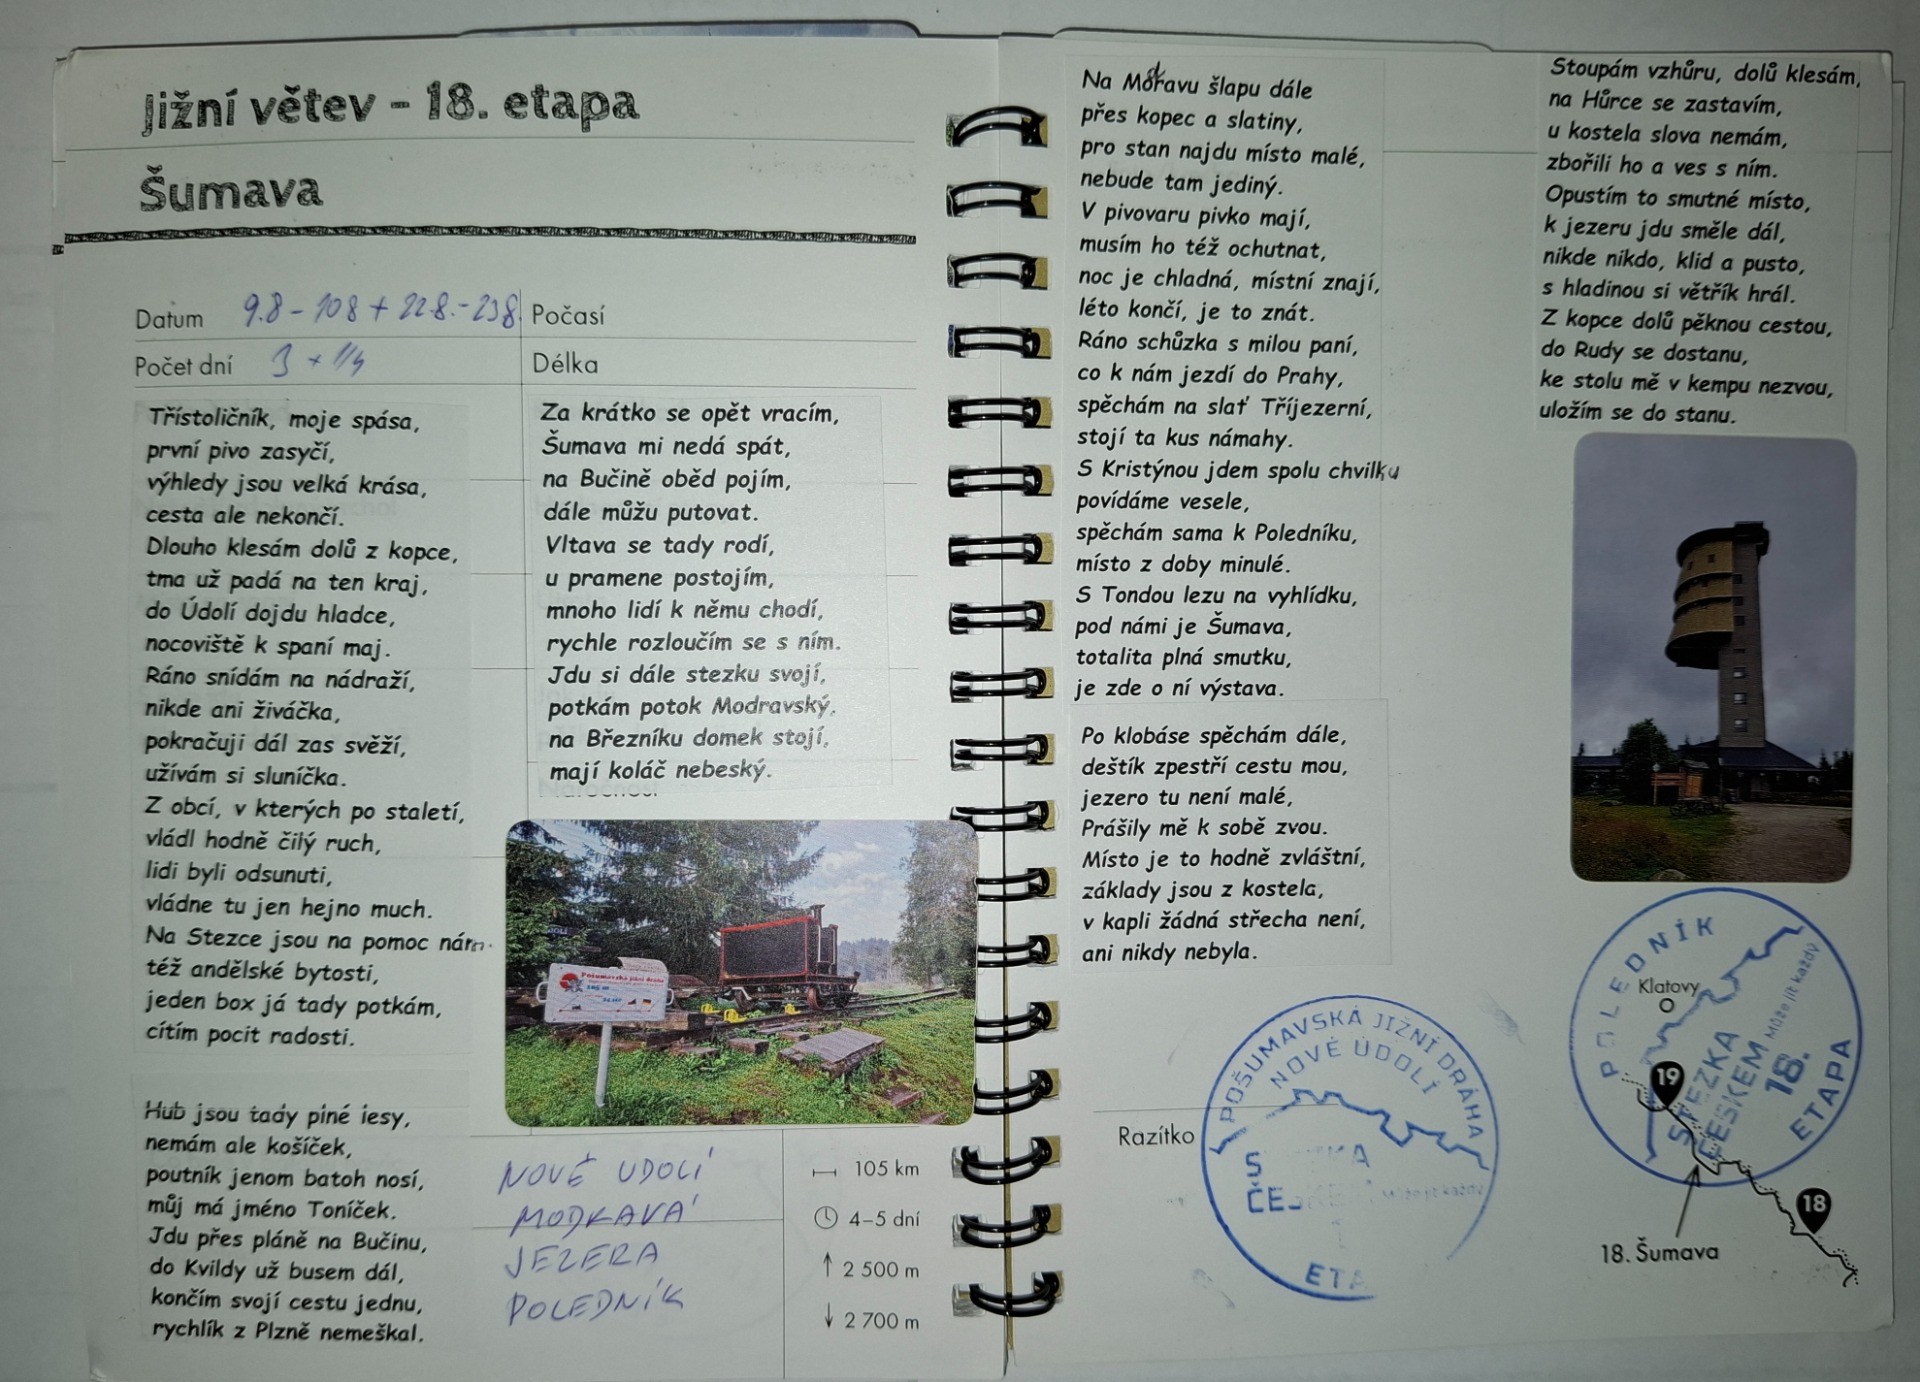 Jižní větev - 18. etapa
Šumava
Datum 9.8 - 10.8 + 22.8. - 23.8.
Počasí
Počet dní 3 + 1/4
Délka
Třístoličník, moje spása,
první pivo zasyčí,
výhledy jsou velká krása,
cesta ale nekončí.
Dlouho klesám dolů z kopce,
tma už padá na ten kraj,
do Údolí dojdu hladce,
nocoviště k spaní maj.
Ráno snídám na nádraží,
nikde ani živáčka,
pokračuji dál zas svěží,
užívám si sluníčka.
Z obcí, v kterých po staletí,
vládl hodně čilý ruch,
lidi byli odsunuti,
vládne tu jen hejno much.
Na Stezce jsou na pomoc nám
též andělské bytosti,
jeden box já tady potkám,
cítím pocit radosti.
Hub jsou tady plné lesy,
nemám ale košíček,
poutník jenom batoh nosí,
můj má jméno Toníček.
Jdu přes pláně na Bučinu,
do Kvildy už busem dál,
končím svojí cestu jednu,
rychlík z Plzně nemeškal.
Za krátko se opět vracím,
Šumava mi nedá spát,
na Bučině oběd pojím,
dále můžu putovat.
Vltava se tady rodí,
u pramene postojím,
mnoho lidí k němu chodí,
rychle rozloučím se s ním.
Jdu si dále stezku svojí,
potkám potok Modravský,
na Březníku domek stojí,
mají koláč nebeský.
Pošumavská jižní dráha
NOVÉ UDOLÍ
MODRAVA
JEZERA
POLEDNÍK
105 km
4–5 dní
↑ 2 500 m
↓ 2 700 m
Na Modravu šlapu dále
přes kopec a slatiny,
pro stan najdu místo malé,
nebude tam jediný.
V pivovaru pivko mají,
musím ho též ochutnat,
noc je chladná, místní znají,
léto končí, je to znát.
Ráno schůzka s milou paní,
co k nám jezdí do Prahy,
spěchám na slať Tříjezerní,
stojí ta kus námahy.
S Kristýnou jdem spolu chvilku
povídáme vesele,
spěchám sama k Poledníku,
místo z doby minulé.
S Tondou lezu na vyhlídku,
pod námi je Šumava,
totalita plná smutku,
je zde o ní výstava.
Po klobáse spěchám dále,
deštík zpestří cestu mou,
jezero tu není malé,
Prášily mě k sobě zvou.
Místo je to hodně zvláštní,
základy jsou z kostela,
v kapli žádná střecha není,
ani nikdy nebyla.
Razítko
POŠUMAVSKÁ JIŽNÍ DRÁHA
NOVÉ ÚDOLÍ
Může jít každý
Stoupám vzhůru, dolů klesám,
na Hůrce se zastavím,
u kostela slova nemám,
zbořili ho a ves s ním.
Opustím to smutné místo,
k jezeru jdu směle dál,
nikde nikdo, klid a pusto,
s hladinou si větřík hrál.
Z kopce dolů pěknou cestou,
do Rudy se dostanu,
ke stolu mě v kempu nezvou,
uložím se do stanu.
POLEDNÍK
Klatovy
STEZKA
ČESKEM
Může jít každý
18.
ETAPA
19
18
18. Šumava